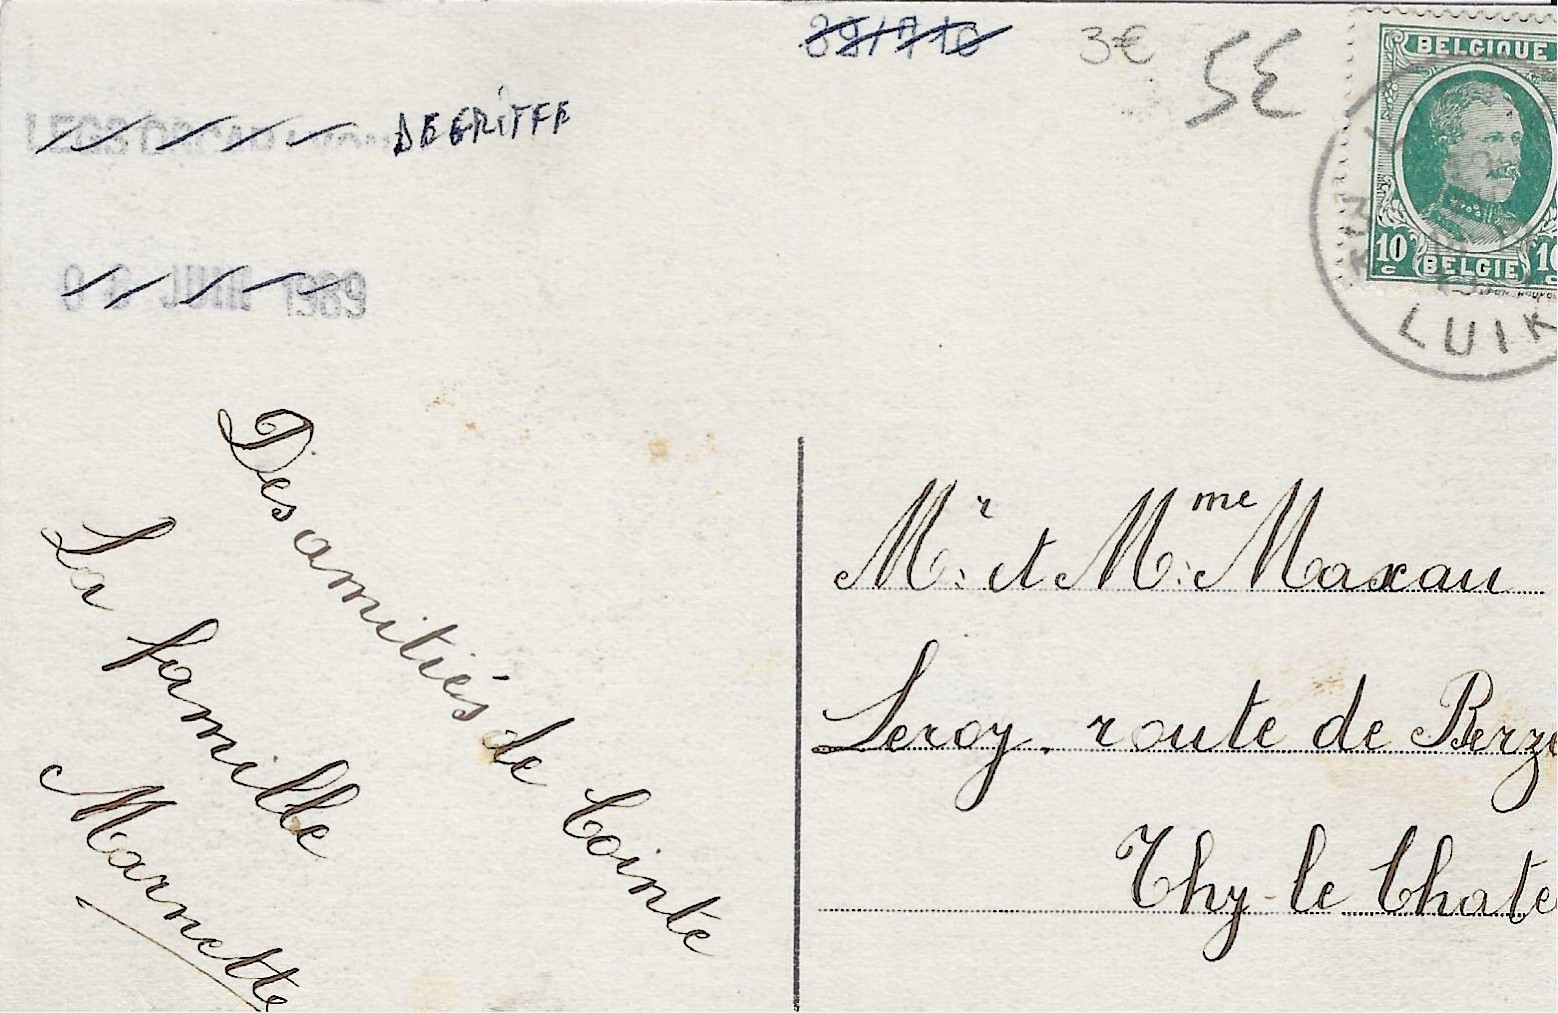 3€
5€
BELGIQUE
10 c
BELGIE
LUIK
DEGRIFFE
JUIL 1989
Des amitiés de Cointe
La famille
Marnette
Mr et Mme Maxau
Leroy, route de Berze
Thy-le Chate